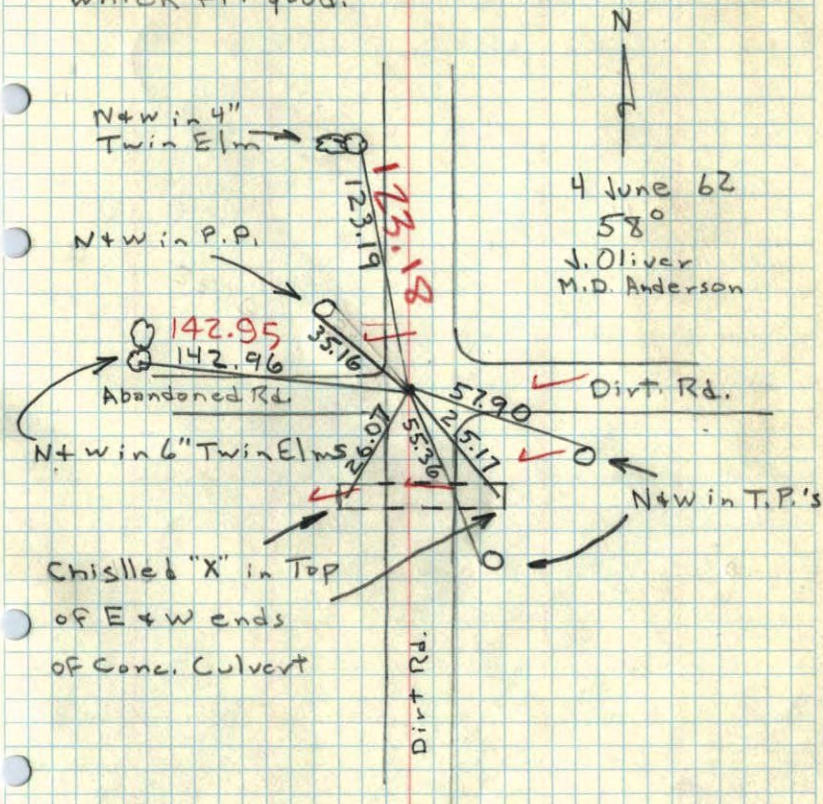 which fit good.
N
N+W in 4"
Twin Elm
123.19
123.18
4 June 62
58°
J. Oliver
M.D. Anderson
N+W in P.P.
35.16
142.95
142.96
Abandoned Rd.
57.90
Dirt. Rd.
N+W in 6" Twin Elms
26.07
55.36
25.17
N+W in T.P.'s
Chislled "X" in Top
of E + W ends
of Conc. Culvert
Dirt Rd.